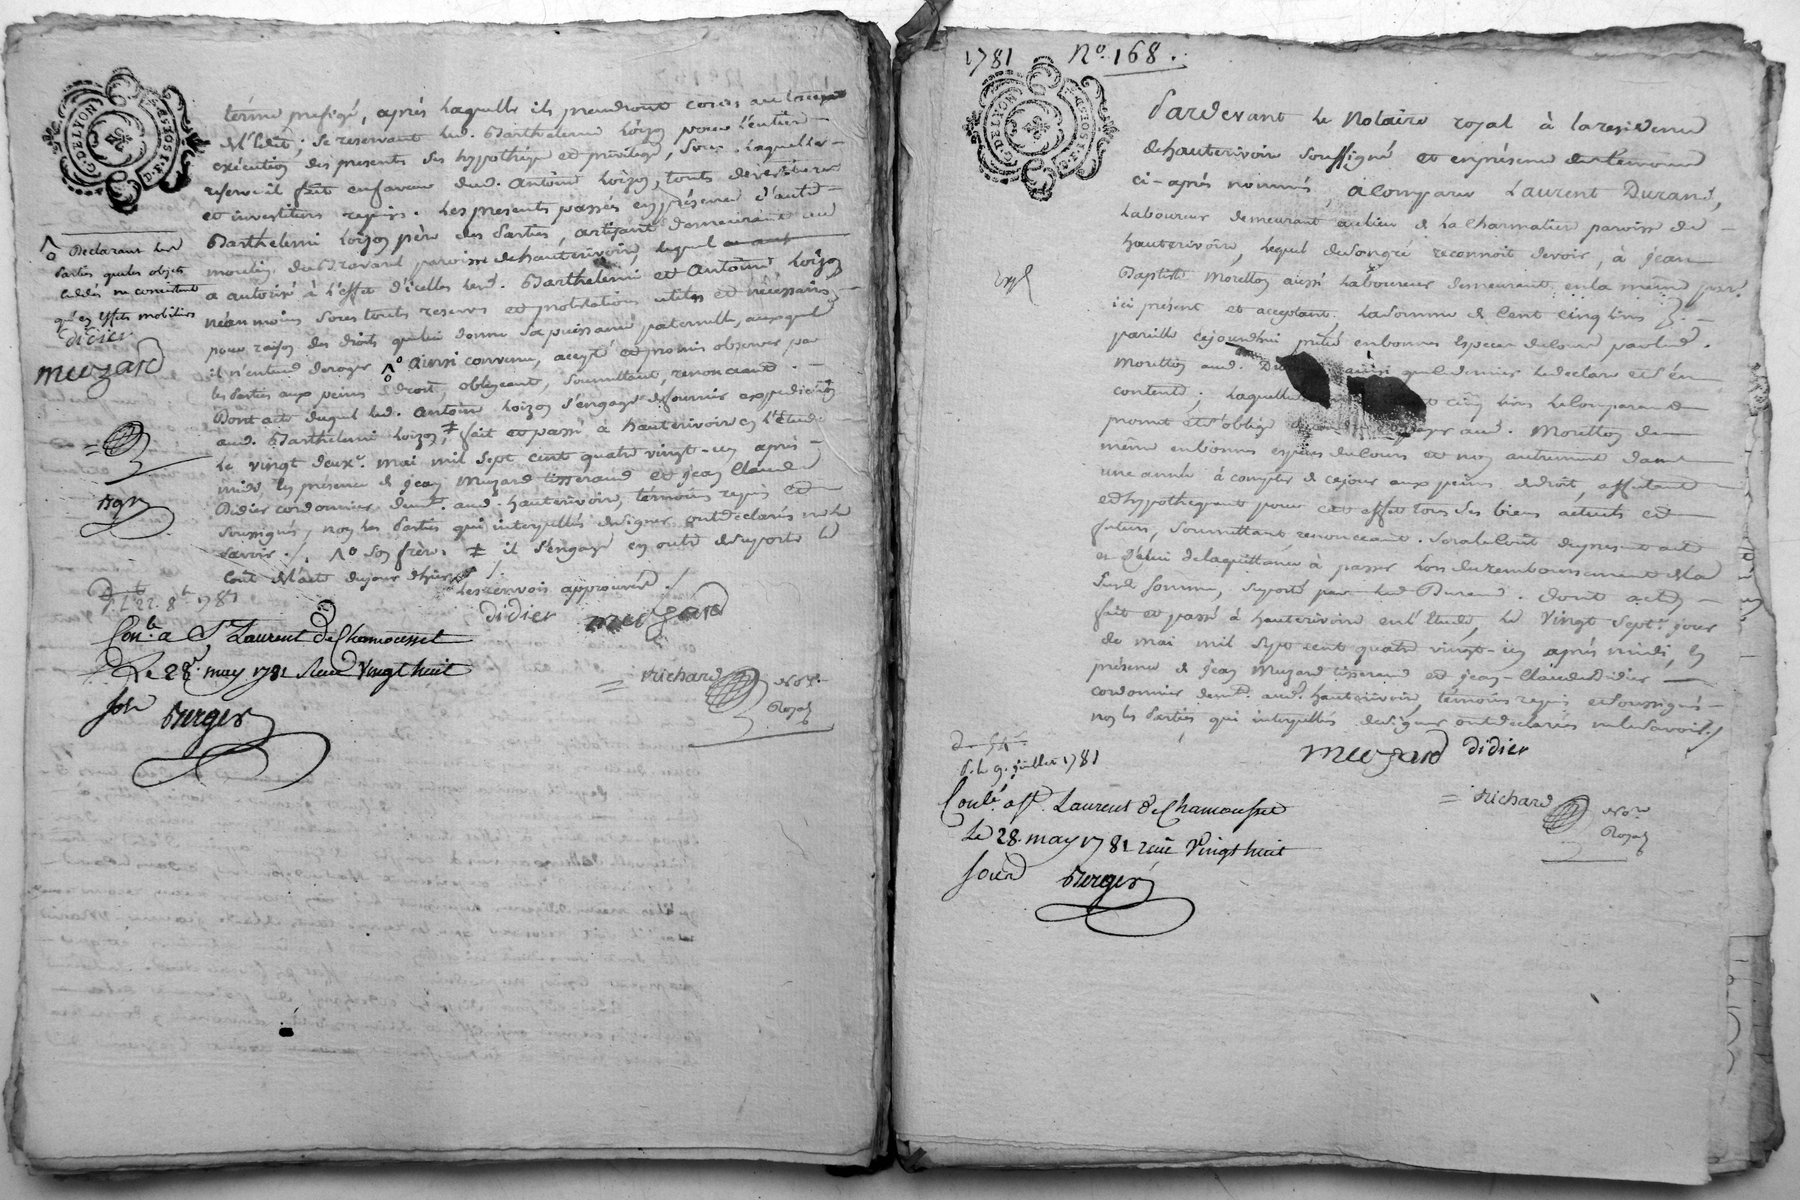 G. DE LYON
D. F. SIX SOLS
terme prefigé, après laquelle ils prendront cours au
de l'Edit; se reservant led. Barthelemi Loizon pour l'entiere
exécution des presents ses hypothéque et privilége, sous laquelle
reserve il fait en faveur dud. Antoine Loizon, touts devestiture
et investiture requis. Les presents passés en présence d'autre
Barthelemi Loizon père des Parties, artisant demeurant au
moulin du Brevard paroisse de hauterivoire, lequel
a autorisé à l'effet d'icelles lesd. Barthelemi et Antoine Loizon
néanmoins sous touts reserves et protestations utiles et nécéssaires
pour raison des droits que lui donne sa puissance paternelle, auxquels
il n'entend deroger Ainsi convenu, accepté et promis observer par
les Parties aux peines de droit, obligeant, soumettant, renonceant.
Dont acte duquel led. Antoine Loizon s'engage de fournir expedition
aud. Barthelemi Loizon, ‡ fait et passé à hauterivoire en l'étude
le vingt deux.e mai mil sept cent quatre vingt-un après
midi, en présence de Jean Muzard tisserand et Jean Claude
Didier cordonnier dem.t aud. hauterivoire, témoins requis et
soussignés, non les Parties qui interpellés de signer ont déclarés ne le
savoir ./. son frère. ‡ il s'engage en outre de suporter le
cout de l'acte du jour d'hier /.
Les renvois approuvés /.
Declarant les
Parties que les objets
cedés ne consistent
qu'en effets mobiliers
didier
meuzard
didier meuzard
22. 8.e 1781
Con.lé a S.t Laurent de Chamousset
Le 28. may 1781 Reçu Vingt huit
sols Berger
= Richard No.re
Royal
1781 N.o 168.
G. DE LYON
D. F. SIX SOLS
Pardevant le Notaire royal à la residence
de hauterivoire soussigné et en présence des temoins
ci-après nommés, a Comparu Laurent Durand,
Laboureur demeurant au lieu de la Charmatier paroisse de
hauterivoire, lequel de son gré reconnoit devoir, à Jean
Baptiste Moretton aussi Laboureur demeurant en la même par.se
ici présent et acceptant. La somme de Cent Cinq livres
pareille cejourdhui prêté en bonnes Especes de cour par led.
Moretton aud. ainsi que ce dernier le declare et s'en
contente; laquelle cinq livres le Comparant
promet et s'oblige aud. Moretton de
même en bonnes espèces de cours et non autrement dans
une année à compter de cejour aux peines de droit, affectant
et hypothéquant pour cet effet tous ses biens actuels et
futurs, soumettant, renonceant. Sera le Cout du present acte
et celui de la quittance à passer lors du remboursement de la
susd. somme, suporté par led. Durand. Dont acte
fait et passé à hauterivoire en l'étude, le Vingt sept.e jour
de mai mil sept cent quatre vingt-un après midi, en
présence de Jean Muzard tisserand et Jean-Claude Didier
cordonnier dem.t aud. hauterivoire, témoins requis et soussignés
non les Parties, qui interpellés de signer ont déclarés ne le Savoir ./.
meuzard didier
= Richard No.re
Royal
9. juillet 1781
Conlé a St. Laurent de Chamousset
Le 28. may 1781 reçu Vingt huit
sols Berger